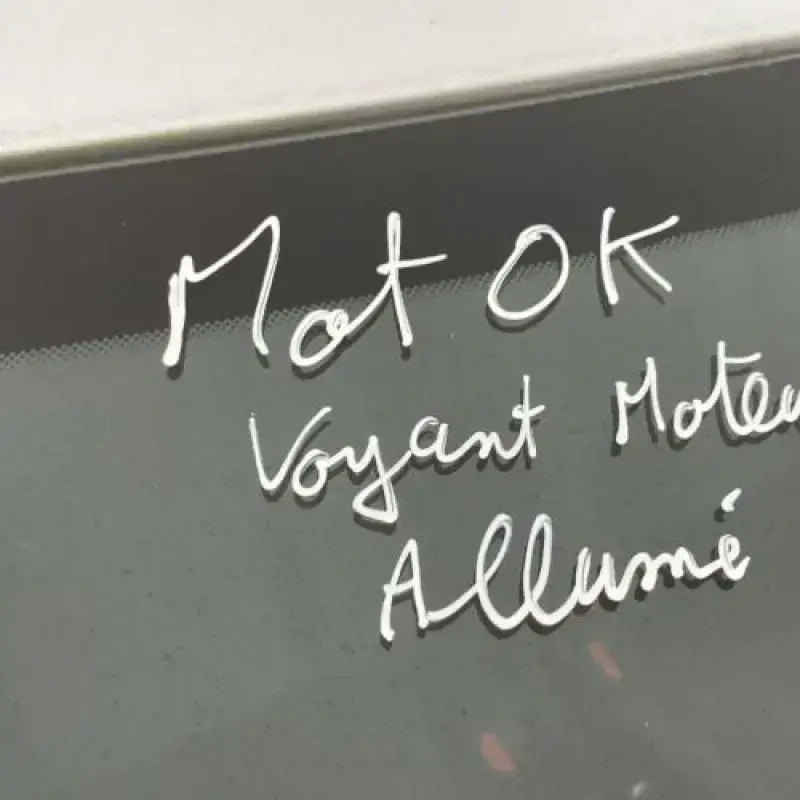 Mot OK
Voyant Moteu
Allumé